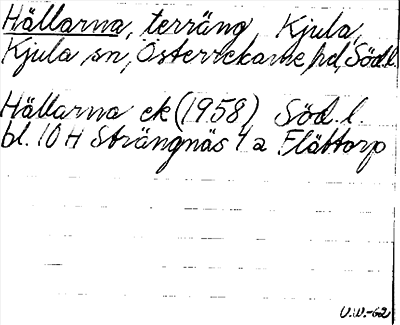 Hällarna, terräng Kjula,
Kjula sn, Österrekarne hd, Söd.l.
Hällarna ek (1958) Söd.l.
bl. 10 H Strängnäs 4 a Flättorp
U.W.-62